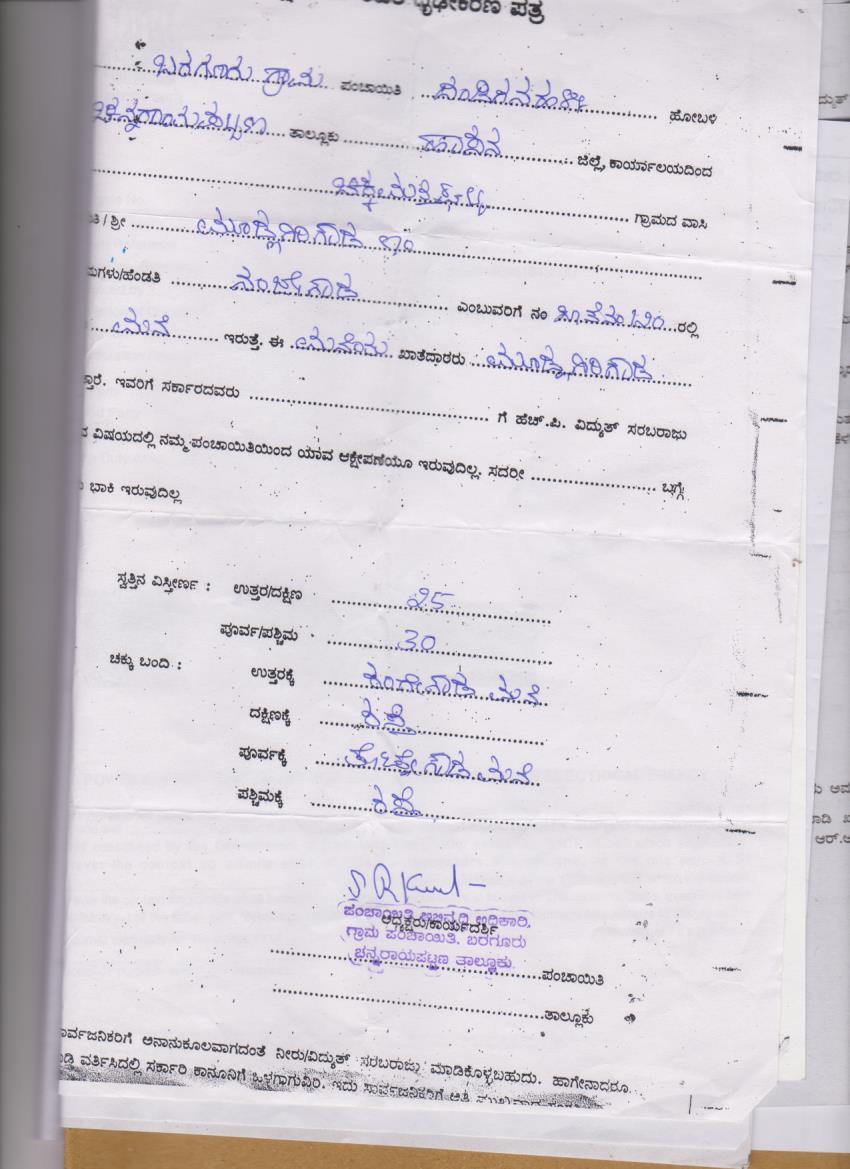 ದೃಢೀಕರಣ ಪತ್ರ
ಬರಗೂರು ಗ್ರಾಮ ಪಂಚಾಯಿತಿ ದಂಡಿಗನಹಳ್ಳಿ ಹೋಬಳಿ
ಚನ್ನರಾಯಪಟ್ಟಣ ತಾಲ್ಲೂಕು ಹಾಸನ ಜಿಲ್ಲೆ, ಕಾರ್ಯಾಲಯದಿಂದ
ಗ್ರಾಮದ ವಾಸಿ
/ ಶ್ರೀ ಮೂಡ್ಲಗಿರಿಗೌಡ ಬಿನ್
ಮಗಳು/ಹೆಂಡತಿ ನಂಜೇಗೌಡ ಎಂಬುವರಿಗೆ ನಂ ರಲ್ಲಿ
ಮನೆ ಇರುತ್ತೆ. ಈ ಮನೆಯ ಖಾತೆದಾರರು ಮೂಡ್ಲಗಿರಿಗೌಡ
ಇವರಿಗೆ ಸರ್ಕಾರದವರು ಗೆ ಹೆಚ್.ಪಿ. ವಿದ್ಯುತ್ ಸರಬರಾಜು
ವಿಷಯದಲ್ಲಿ ನಮ್ಮ ಪಂಚಾಯಿತಿಯಿಂದ ಯಾವ ಆಕ್ಷೇಪಣೆಯೂ ಇರುವುದಿಲ್ಲ. ಸದರೀ ಬಗ್ಗೆ
ಬಾಕಿ ಇರುವುದಿಲ್ಲ
ಸ್ವತ್ತಿನ ವಿಸ್ತೀರ್ಣ : ಉತ್ತರ/ದಕ್ಷಿಣ 25
ಪೂರ್ವ/ಪಶ್ಚಿಮ 30
ಚಕ್ಕು ಬಂದಿ : ಉತ್ತರಕ್ಕೆ ರಂಗೇಗೌಡ ಮನೆ
ದಕ್ಷಿಣಕ್ಕೆ ರಸ್ತೆ
ಪೂರ್ವಕ್ಕೆ ಮನೆ
ಪಶ್ಚಿಮಕ್ಕೆ ರಸ್ತೆ
ಪಂಚಾಯಿತಿ ಅಭಿವೃದ್ಧಿ ಅಧಿಕಾರಿ,
ಅಧ್ಯಕ್ಷರು/ಕಾರ್ಯದರ್ಶಿ
ಗ್ರಾಮ ಪಂಚಾಯಿತಿ. ಬರಗೂರು
ಚನ್ನರಾಯಪಟ್ಟಣ ತಾಲ್ಲೂಕು.
ಪಂಚಾಯಿತಿ
ತಾಲ್ಲೂಕು
ಸಾರ್ವಜನಿಕರಿಗೆ ಅನಾನುಕೂಲವಾಗದಂತೆ ನೀರು/ವಿದ್ಯುತ್ ಸರಬರಾಜು ಮಾಡಿಕೊಳ್ಳಬಹುದು. ಹಾಗೇನಾದರೂ
ವರ್ತಿಸಿದಲ್ಲಿ ಸರ್ಕಾರಿ ಕಾನೂನಿಗೆ ಒಳಗಾಗುವಿರಿ. ಇದು ಸಾರ್ವಜನಿಕರಿಗೆ ಅತಿ